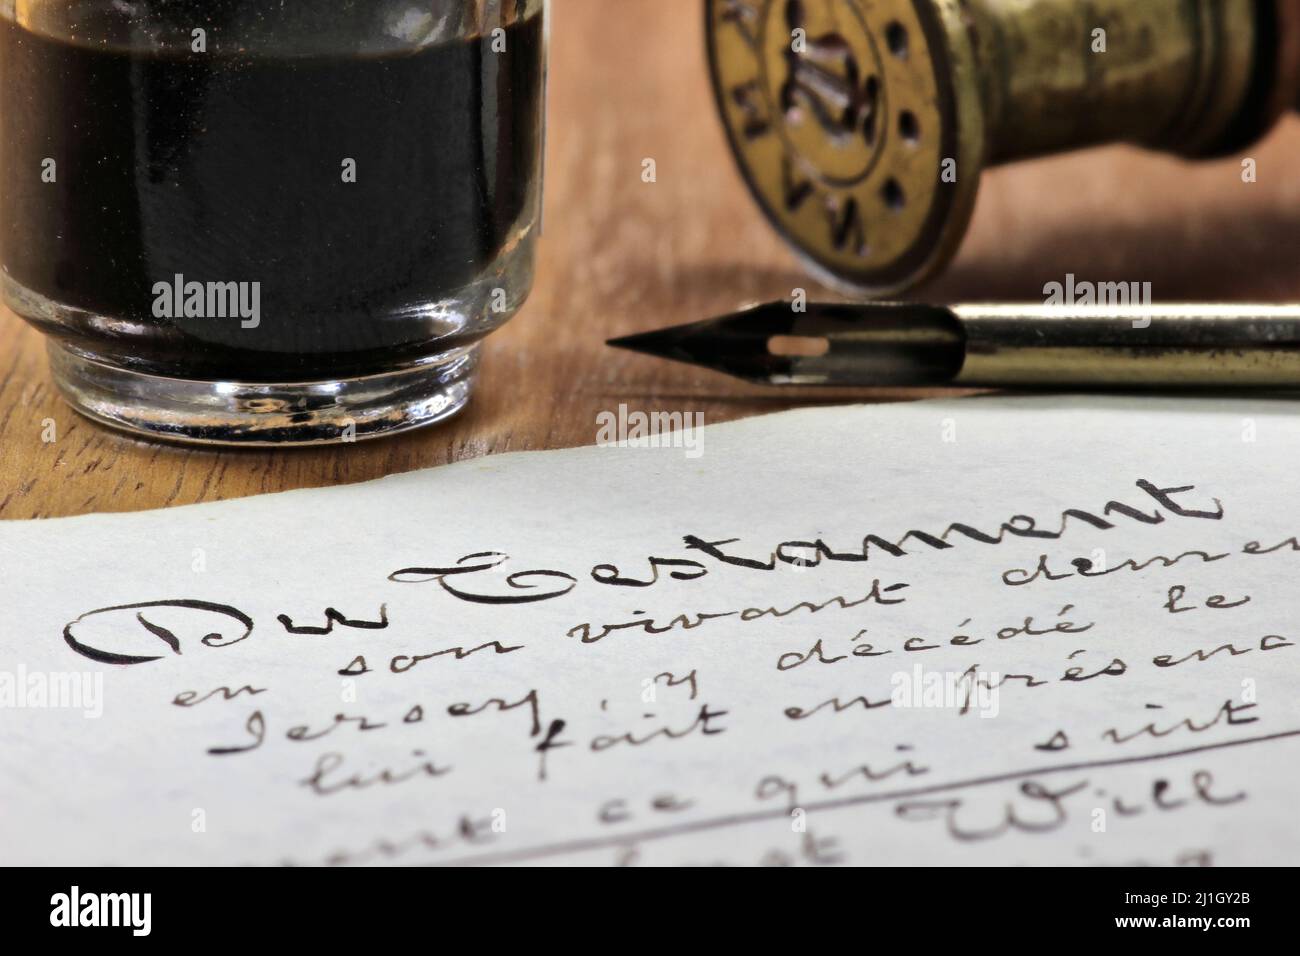 Du Testament
en son vivant
Jersey, y décédé le
lui fait en
ce qui suit
Will
alamy
Image ID: 2J1GY2B
www.alamy.com